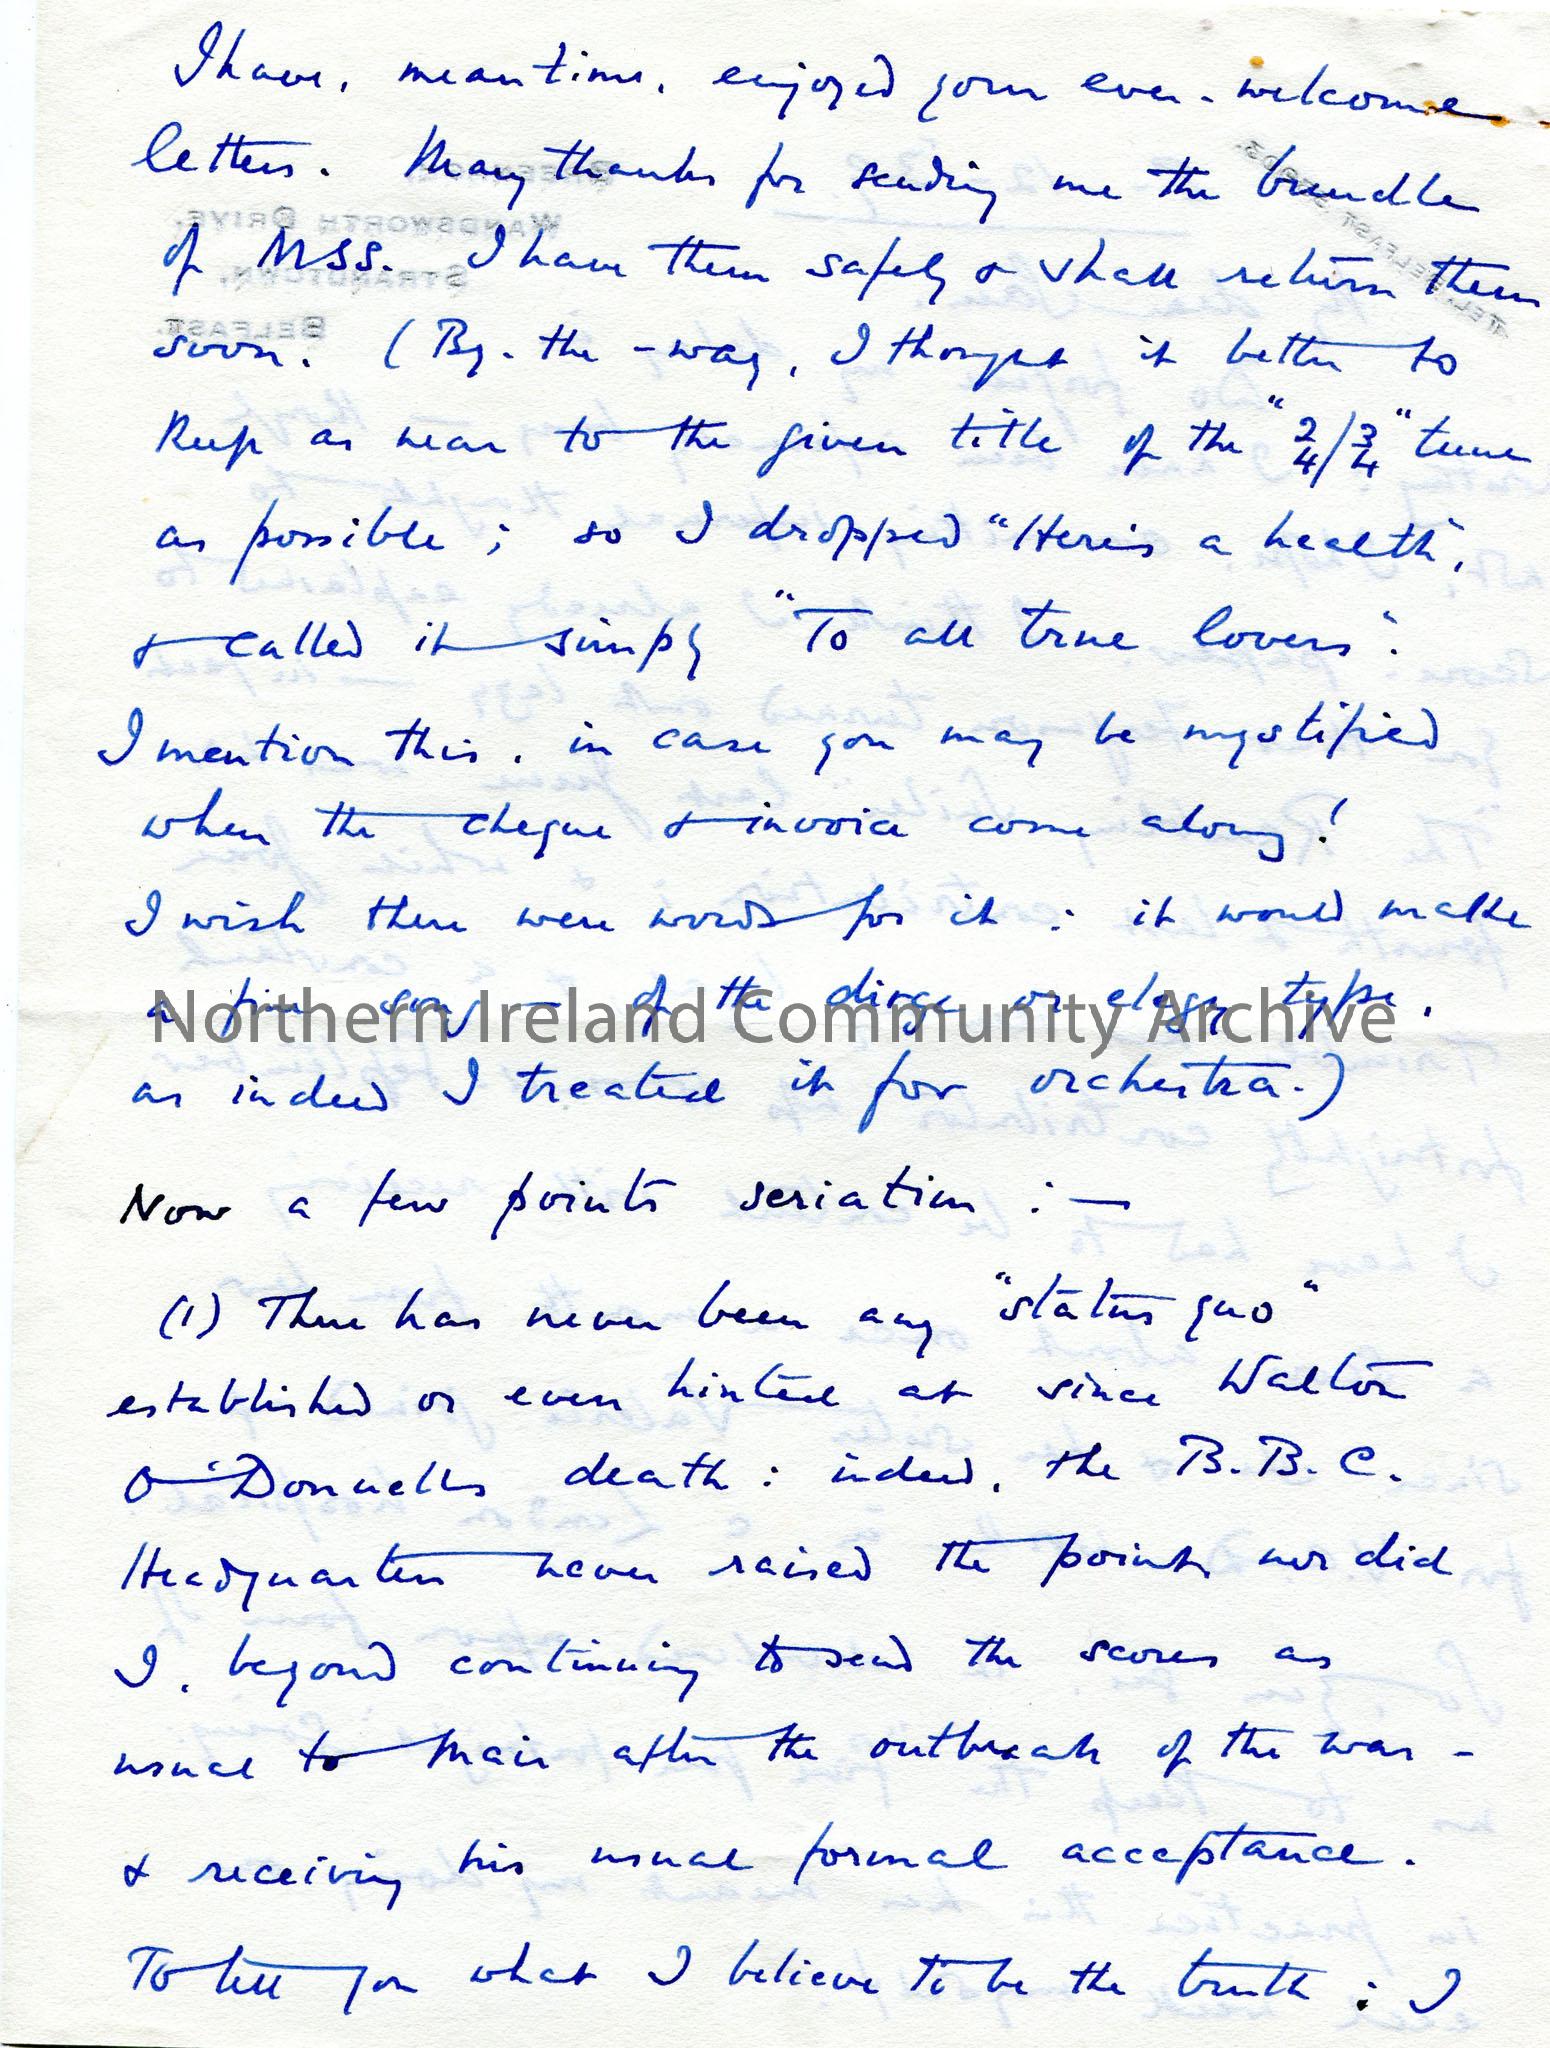 I have, meantime, enjoyed your ever-welcome
letters. Many thanks for sending me the bundle
of MSS. I have them safely & shall return them
soon. (By-the-way, I thought it better to
keep as near to the given title of the "2/4 / 3/4" tune
as possible; so I dropped "Here's a health",
& called it simply "To all true lovers".
I mention this, in case you may be mystified
when the cheque & invoice come along!
I wish there were words for it: it would make
a fine song - of the dirge or elegy type,
Northern Ireland Community Archive
as indeed I treated it for orchestra.)
Now a few points seriatim :-
(1) There has never been any "status quo"
established or even hinted at since Walton
O'Donnell's death: indeed, the B.B.C.
Headquarters never raised the point, nor did
I, beyond continuing to send the scores as
usual to Mair after the outbreak of the war -
& receiving his usual formal acceptance.
To tell you what I believe to be the truth: I
WANDSWORTH DRIVE,
STRANDTOWN,
BELFAST.